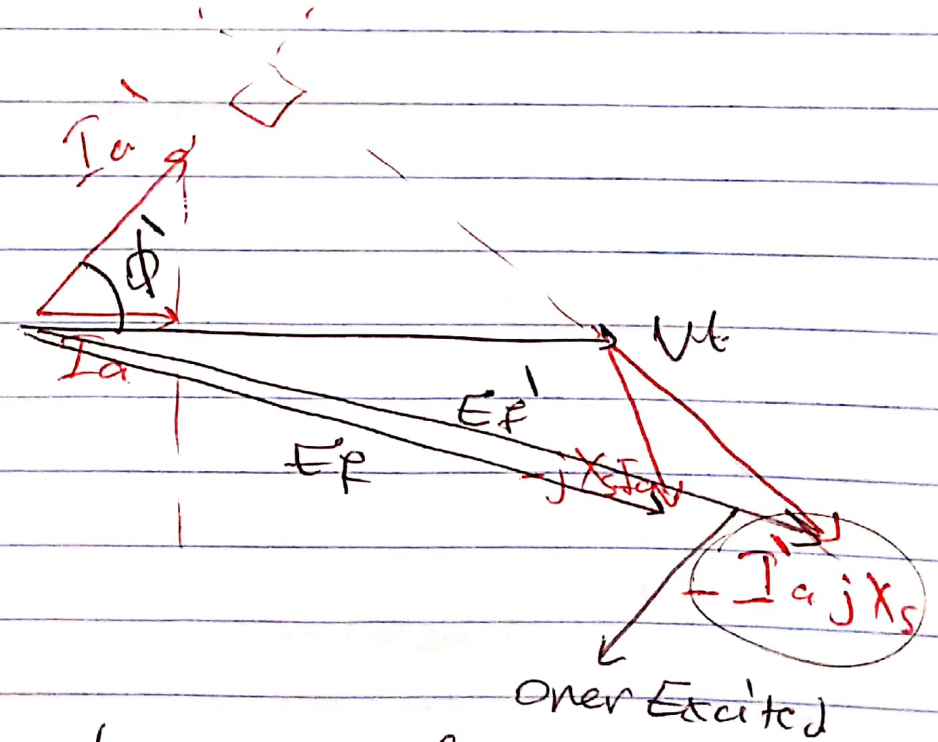 I'a
ϕ'
Ia
Vt
Ef'
Ef
-jXsIa
- I'a jXs
Over Excited